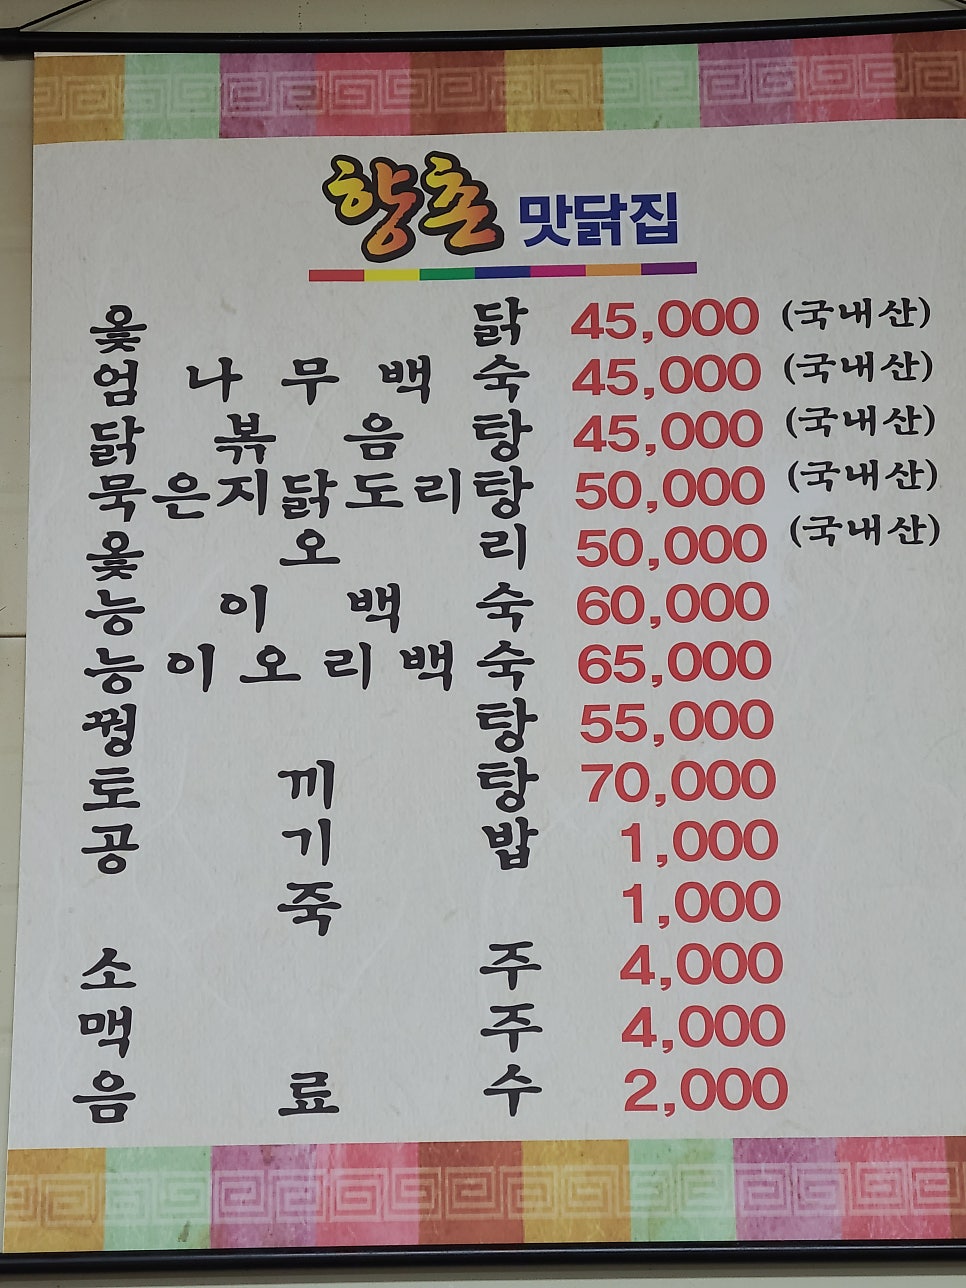 향촌 맛닭집
옻닭 45,000 (국내산)
엄나무백숙 45,000 (국내산)
닭볶음탕 45,000 (국내산)
묵은지닭도리탕 50,000 (국내산)
옻오리 50,000 (국내산)
능이백숙 60,000
능이오리백숙 65,000
꿩탕 55,000
토끼탕 70,000
공기밥 1,000
죽 1,000
소주 4,000
맥주 4,000
음료수 2,000